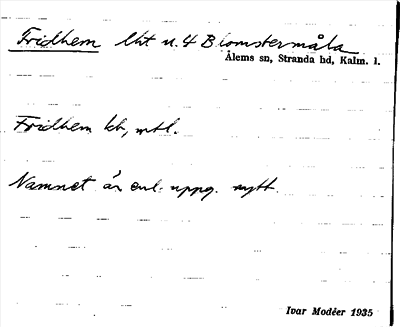 Fridhem lht u. 4 Blomstermåla
Ålems sn, Stranda hd, Kalm. l.
Fridhem kh, mtl.
Namnet är enl. uppg. nytt.
Ivar Modéer 1935